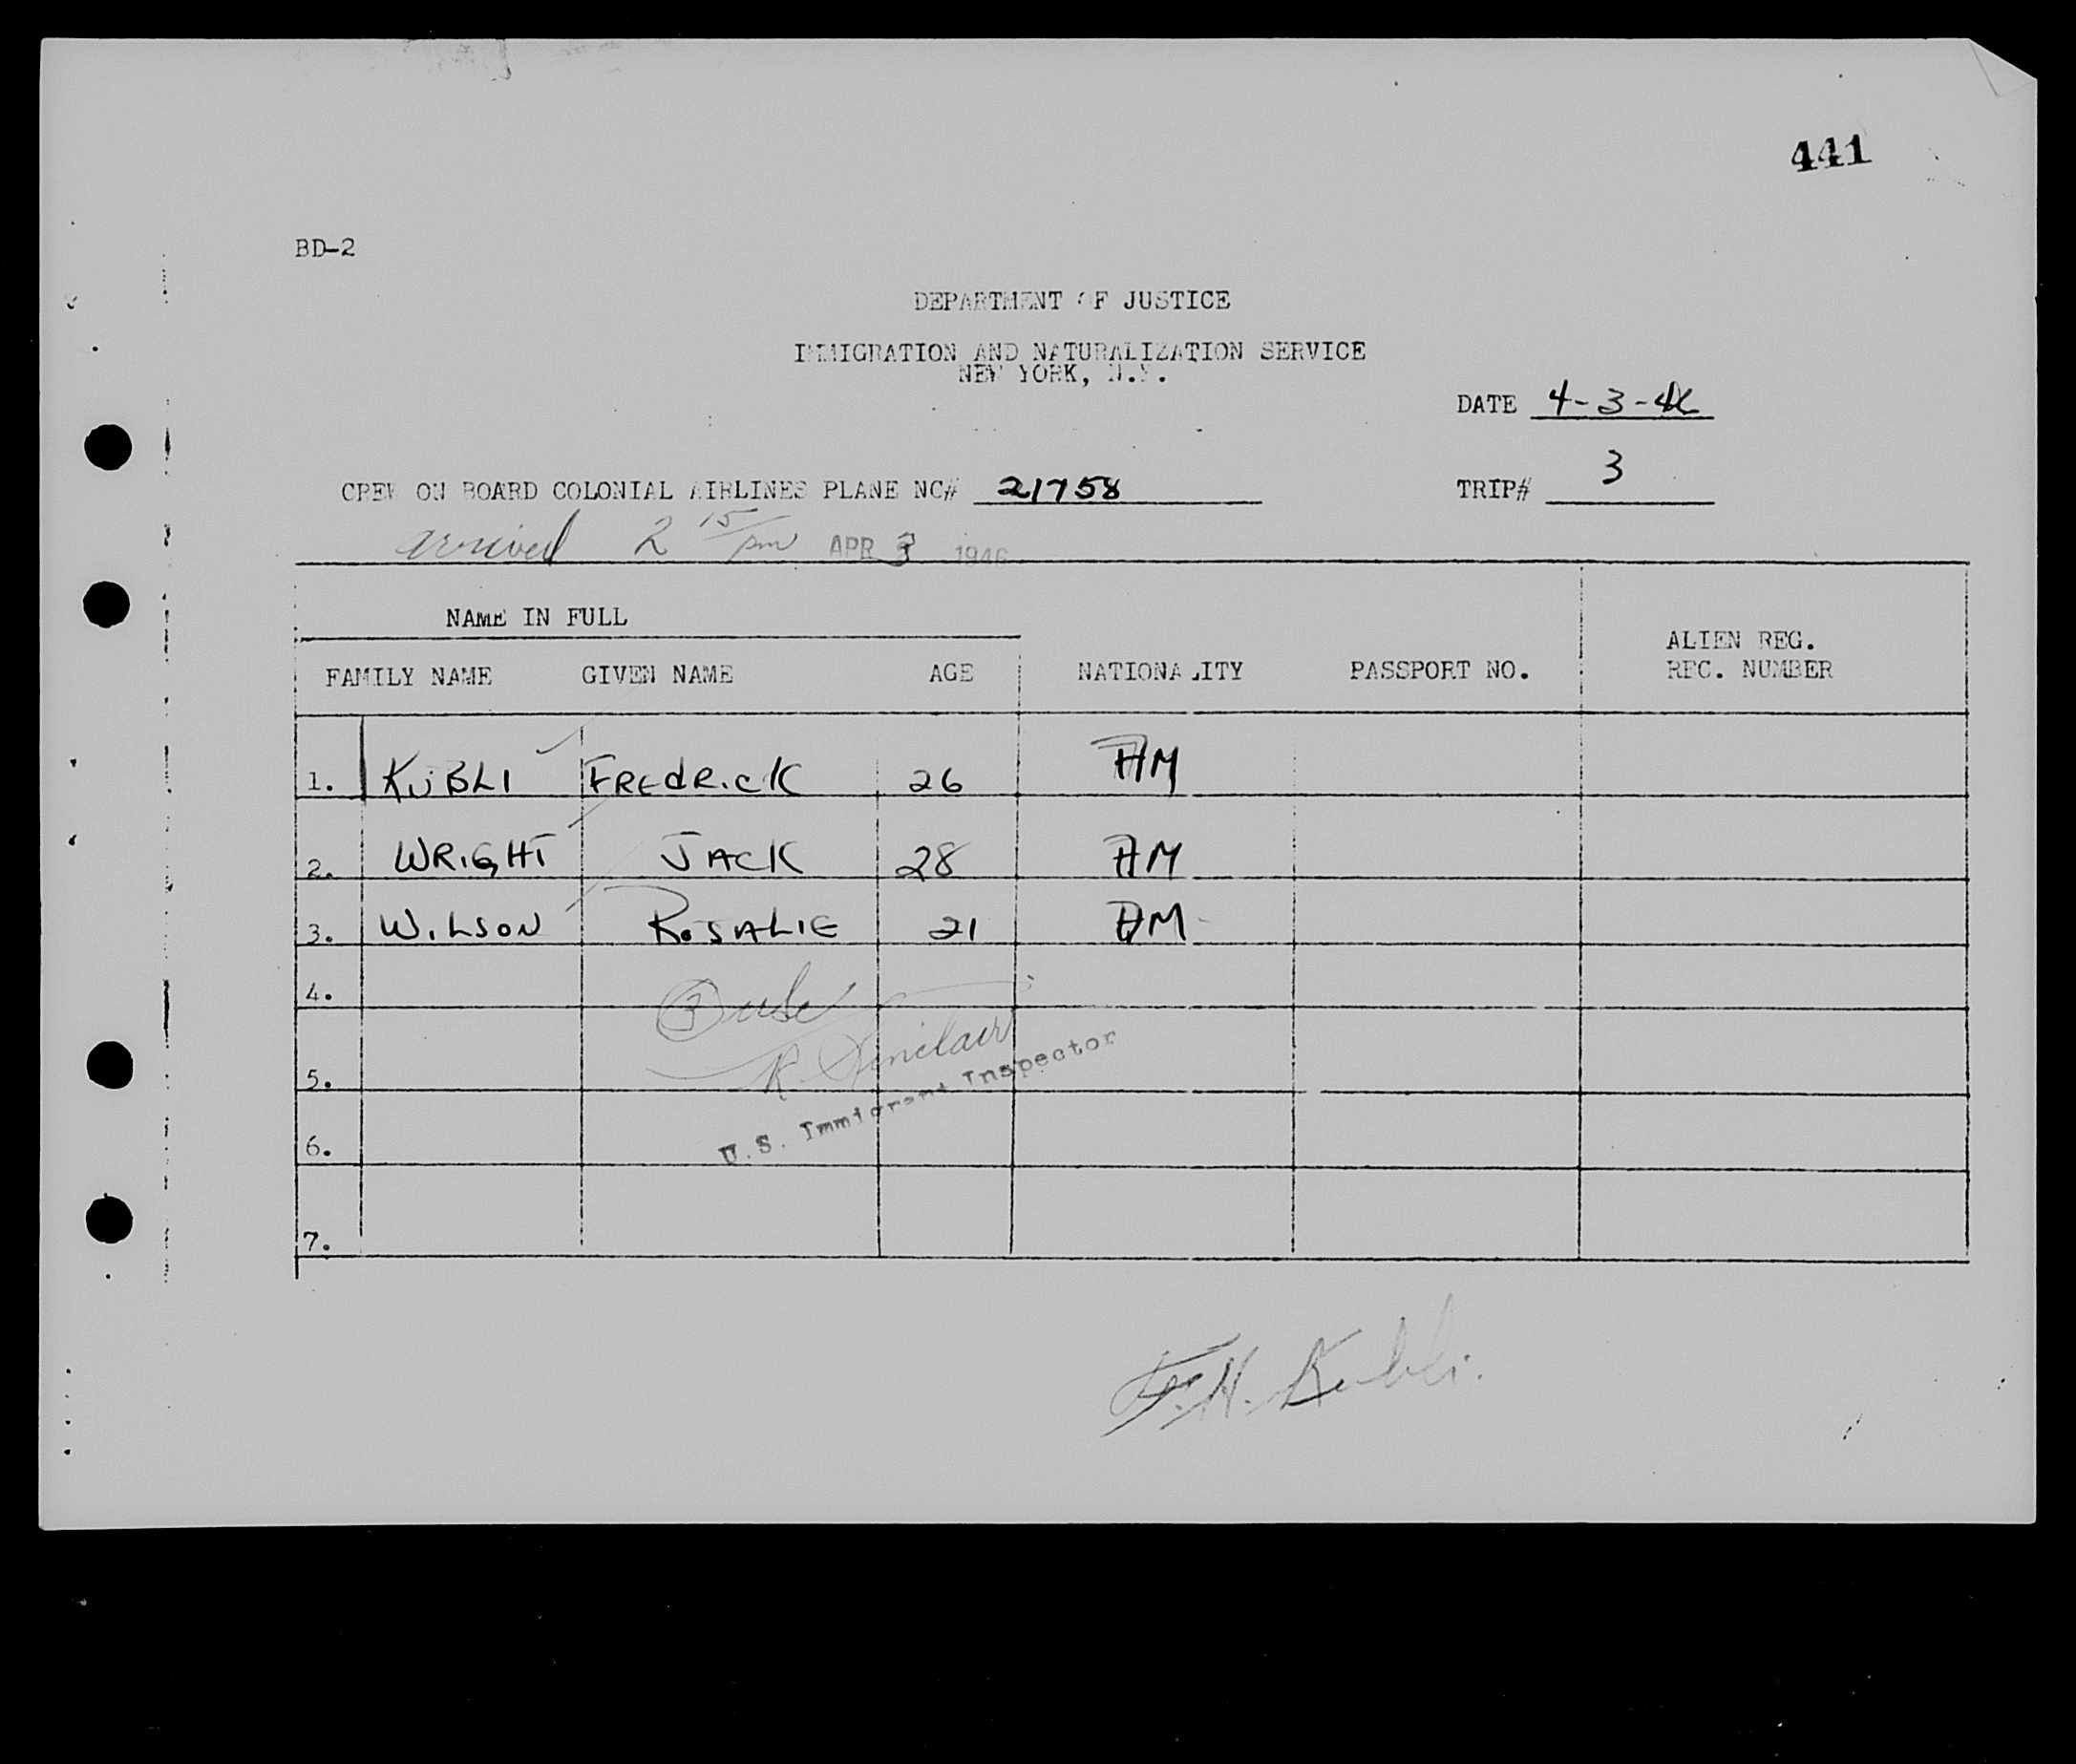 441
BD-2
DEPARTMENT OF JUSTICE
IMMIGRATION AND NATURALIZATION SERVICE
NEW YORK, N.Y.
DATE 4-3-46
CREW ON BOARD COLONIAL AIRLINES PLANE NC# 21758 TRIP# 3
arrived 2 15/pm APR 3 1946
NAME IN FULL
FAMILY NAME GIVEN NAME AGE NATIONALITY PASSPORT NO. ALIEN REG. REC. NUMBER
1. KUBLI FREdRicK 26 AM
2. WRiGHT JACK 28 AM
3. WiLSON ROSALIE 21 AM
4.
③ usc
R. Sinclair
5.
U.S. Immigrant Inspector
6.
7.
F.H. Kubli.